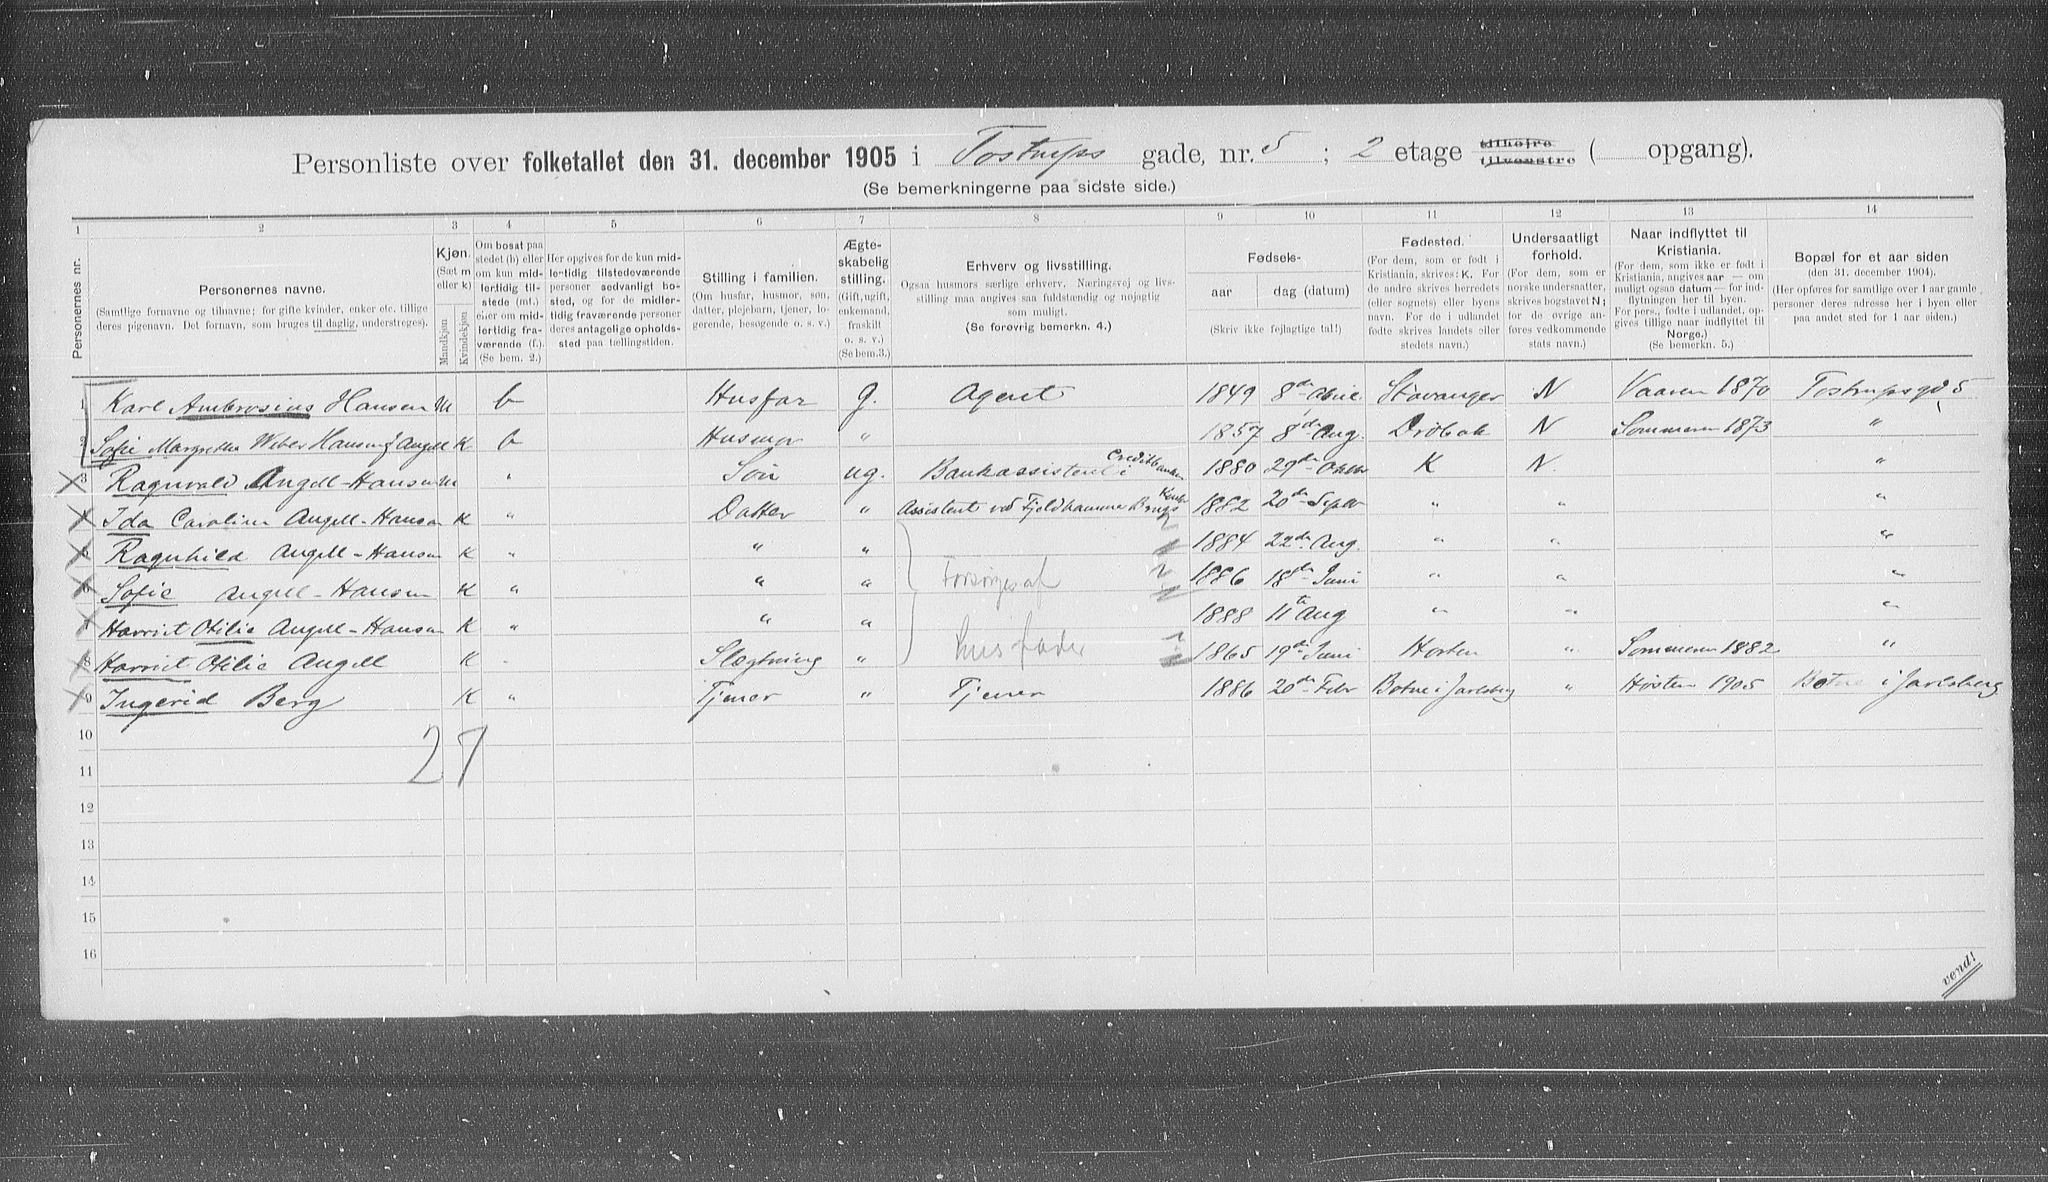 Personliste over folketallet den 31. december 1905 i Tostrups gade, nr. 5 ; 2 etage tilhøjre tilvenstre ( opgang).
(Se bemerkningerne paa sidste side.)
1 2 3 4 5 6 7 8 9 10 11 12 13 14
Personernes nr.
Personernes navne.
(Samtlige fornavne og tilnavne; for gifte kvinder, enker etc. tillige
deres pigenavn. Det fornavn, som bruges til daglig, understreges).
Kjøn.
(Sæt m
eller k)
Mandkjøn
Kvindekjøn
Om bosat paa
stedet (b) eller
om kun mid-
lertidig til-
stede (mt.)
eller om mid-
lertidig fra-
værende (f.).
(Se bem. 2.)
Her opgives for de kun mid-
lertidig tilstedeværende
personer sedvanligt bo-
sted, og for de midler-
tidig fraværende personer
deres antagelige opholds-
sted paa tællingstiden.
Stilling i familien.
(Om husfar, husmor, søn,
datter, plejebarn, tjener, lo-
gerende, besøgende o. s. v.)
Ægte-
skabelig
stilling.
(Gift, ugift,
enkemand,
fraskilt
o. s. v.)
(Se bem.3.)
Erhverv og livsstilling.
Ogsaa husmors særlige erhverv. Næringsvej og livs-
stilling maa angives saa fuldstændig og nøjagtig
som muligt.
(Se forøvrig bemerkn. 4.)
Fødsels-
aar dag (datum)
(Skriv ikke fejlagtige tal!)
Fødested.
(For dem, som er født i
Kristiania, skrives: K. For
de andre skrives herredets
(eller sognets) eller byens
navn. For de i udlandet
fødte skrives landets eller
stedets navn.)
Undersaatligt
forhold.
(For dem, som er
norske undersaatter,
skrives bogstavet N;
for de øvrige an-
føres vedkommende
stats navn.)
Naar indflyttet til
Kristiania.
(For dem, som ikke er født i
Kristiania, angives aar — om
muligt ogsaa datum — for ind-
flytningen her til byen.
For pers., fødte i udlandet, op-
gives tillige naar indflyttet til
Norge.)
(Se bemerkn. 5.)
Bopæl for et aar siden
(den 31. december 1904).
(Her opføres for samtlige over 1 aar gamle
personer deres adresse her i byen eller
paa andet sted for 1 aar siden.)
1 Karl Ambrosius Hansen M b Husfar g. Agent 1849 8de Stavanger N Vaaren 1870 Tostrupsgd 5
2 Sofie Margrethe Weber Hansen f Angell K b Husmor " 1857 8de Aug. Drøbak N Sommeren 1873 "
3 Ragnvald Angell-Hansen M " Søn ug. Bankassistent i Creditbanken 1880 29de Oktbr K N. "
4 Ida Caroline Angell-Hansen K " Datter " Assistent ved Fjeldhamme Brugs Kontor 1882 20de Septbr " " "
5 Ragnhild Angell-Hansen K " " " 1884 22de Aug. " " "
6 Sofie Angell-Hansen K " " " Forsørges af 1886 18de Juni " " "
7 Harriet Otilie Angell-Hansen K " " " 1888 11te Aug " " "
8 Harriet Otilie Angell K " Slægtning " husfader 1865 19de Juni Horten " Sommeren 1882 "
9 Ingerid Berg K " Tjener " Tjener 1886 20de Febr Botne i Jarlsberg " Høsten 1905 Botne i Jarlsberg
10
2 7
11
12
13
14
15
16
vend!